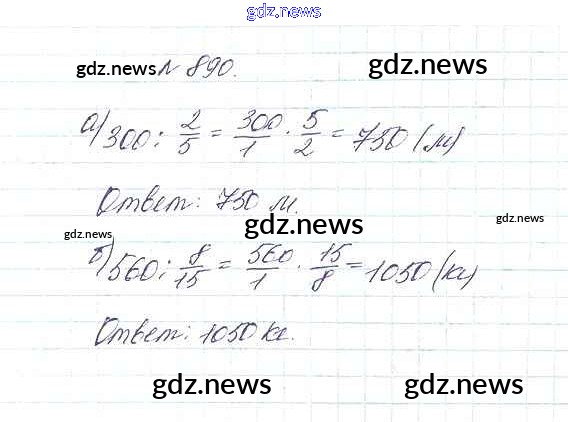 gdz.news
gdz.news № 890. gdz.news
а) 300 : 2/5 = 300/1 · 5/2 = 750 (м)
Ответ: 750 м.
gdz.news gdz.news gdz.news
б) 560 : 8/15 = 560/1 · 15/8 = 1050 (кг)
Ответ: 1050 кг.
gdz.news gdz.news